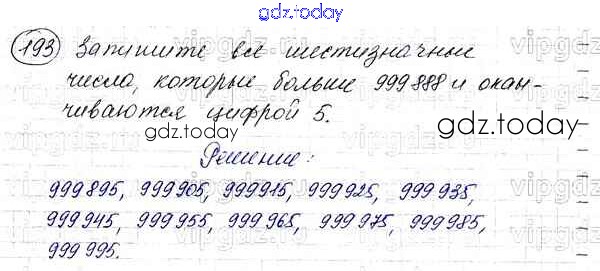 gdz.today
193 Запишите все шестизначные
числа, которые больше 999888 и окан-
чиваются цифрой 5.
gdz.today
gdz.today
Решение:
999895, 999905, 999915, 999925, 999935,
999945, 999955, 999965, 999975, 999985,
999995.